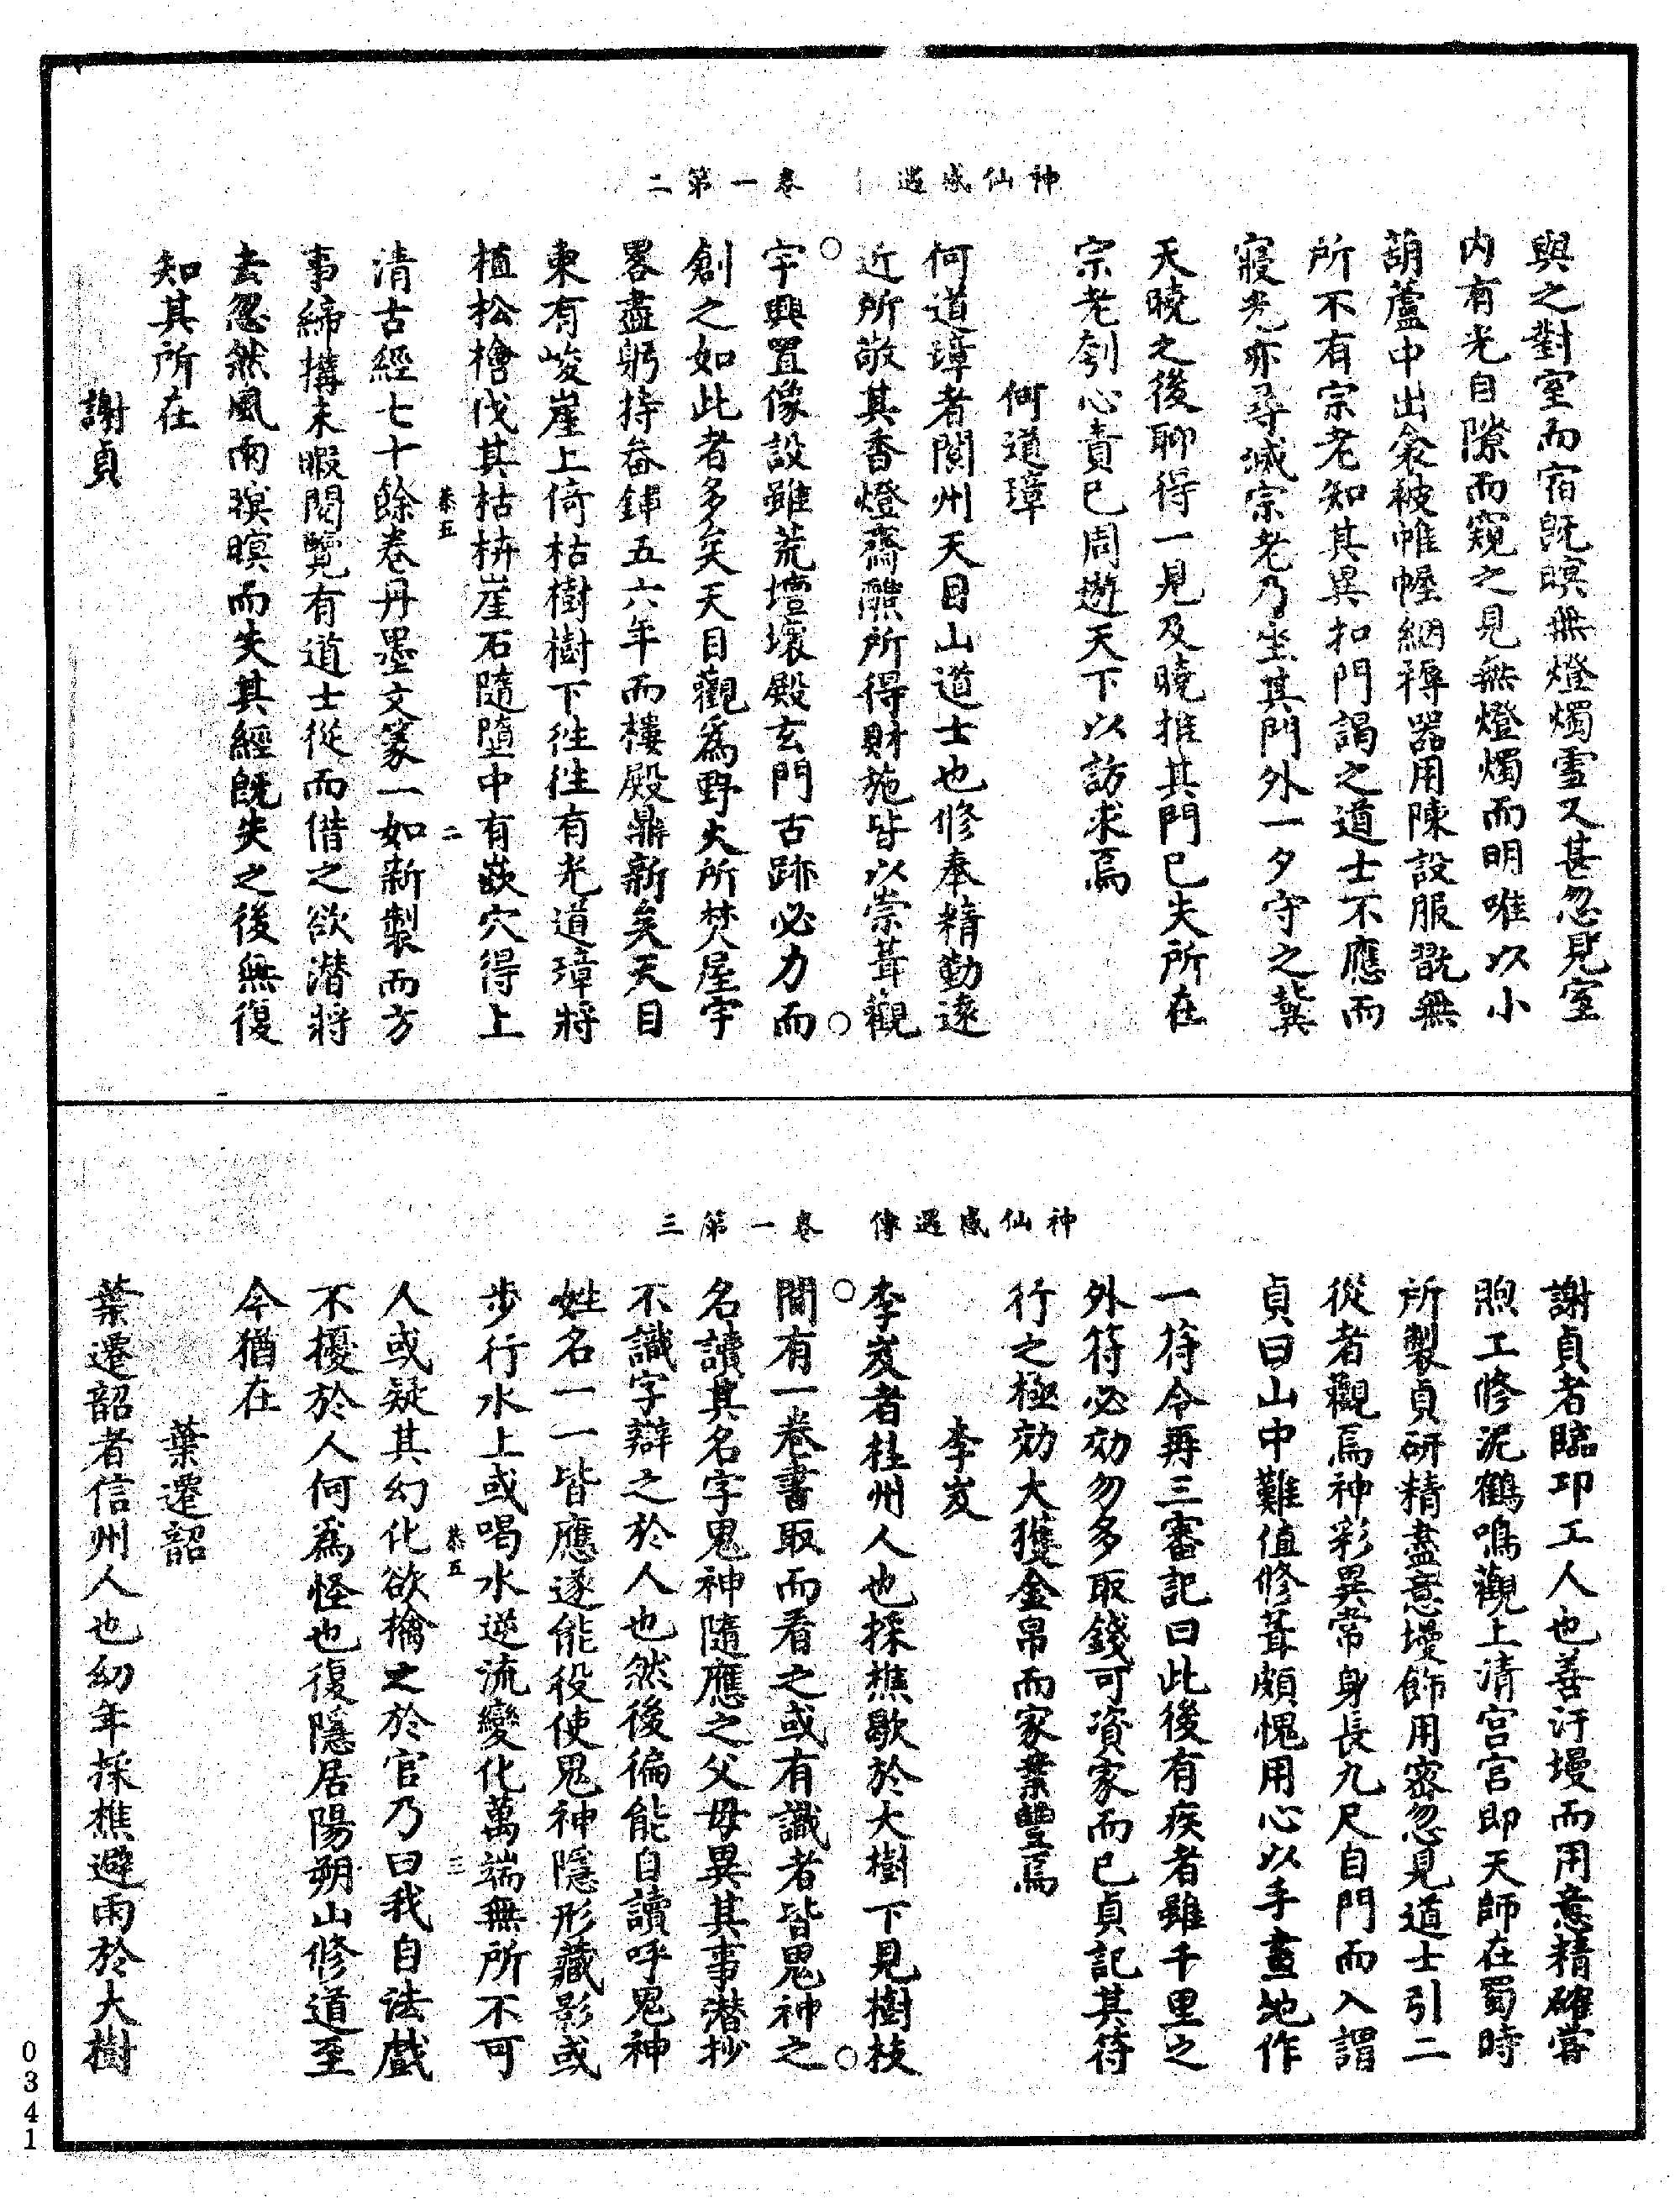 神仙感遇 卷一第二
與之對室而宿旣暝無燈燭雪又甚忽見室
内有光自隙而窺之見無燈燭而明唯以小
葫蘆中出衾被帷幄裀褥器用陳設服翫無
所不有宗老知其異扣門謁之道士不應而
寢光亦尋滅宗老乃坐其門外一夕守之冀
天曉之後聊得一見及曉推其門已失所在
宗老刳心責已周遊天下以訪求焉
何道璋
何道璋者閬州天目山道士也修奉精勤遠
近所敬其香燈齋醮所得財施皆以崇葺觀
宇興置像設雖荒壇壞殿玄門古跡必力而
創之如此者多矣天目觀爲野火所焚屋宇
畧盡躬持畚鍤五六年而樓殿鼎新矣天目
東有峻崖上倚枯樹樹下往往有光道璋將
植松檜伐其枯枿崖石隨墮中有嵌穴得上
恭五 二
清古經七十餘卷丹墨文篆一如新製而方
事締搆未暇閱覽有道士從而借之欲潜將
去忽然風雨暝暝而失其經旣失之後無復
知其所在
謝貞
神仙感遇傳 卷一第三
謝貞者臨邛工人也善汙墁而用意精確嘗
煦工修泥鶴鳴觀上清宫官即天師在蜀時
所製貞研精盡意墁飾用密忽見道士引二
從者觀焉神彩異常身長九尺自門而入謂
貞曰山中難值修葺頗愧用心以手畫地作
一符令再三審記曰此後有疾者雖千里之
外符必効勿多取錢可資家而已貞記其符
行之極効大獲金帛而家業豐焉
李岌
李岌者杜州人也採樵歇於大樹下見樹枝
間有一卷書取而看之或有識者皆鬼神之
名讀其名字鬼神隨應之父母異其事潜抄
不識字辯之於人也然後徧能自讀呼鬼神
姓名一一皆應遂能役使鬼神隱形藏影或
步行水上或喝水逆流變化萬端無所不可
恭五 三
人或疑其幻化欲擒之於官乃曰我自法戲
不擾於人何爲怪也復隱居陽朔山修道至
今猶在
葉遷韶
葉遷韶者信州人也幼年採樵避雨於大樹
0341